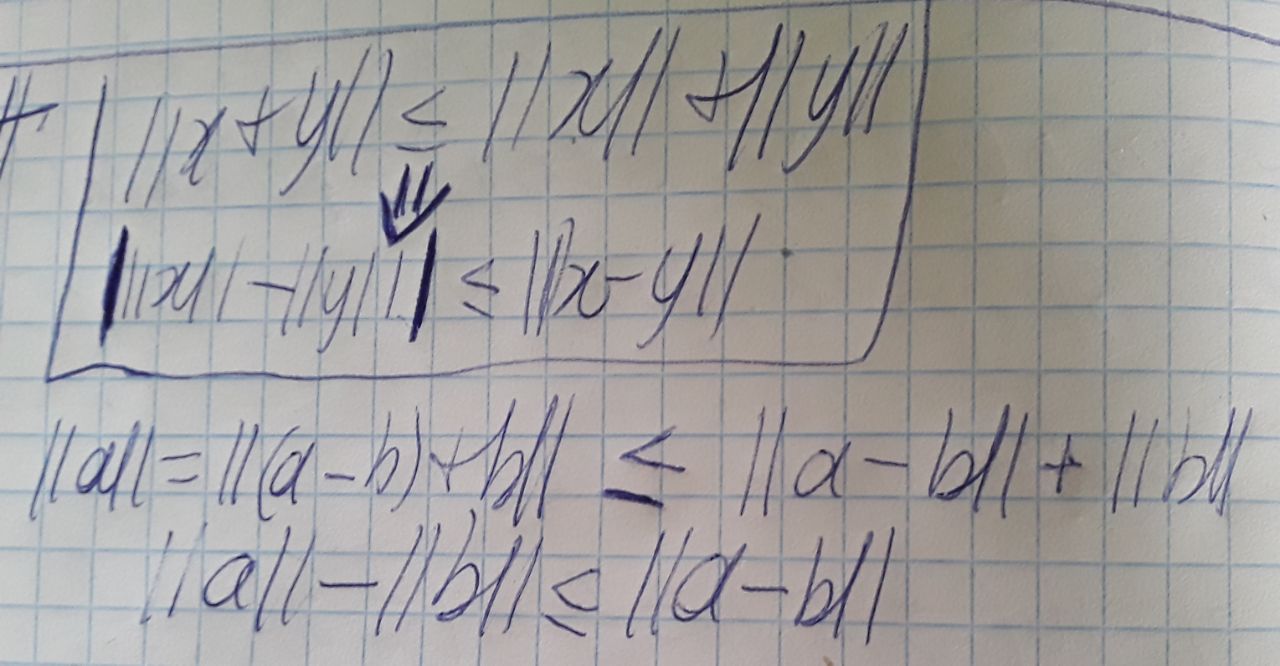 ||x+y|| ≤ ||x|| + ||y||
⇓
| ||x|| - ||y|| | ≤ ||x-y||
||a|| = ||(a-b)+b|| ≤ ||a-b|| + ||b||
||a|| - ||b|| ≤ ||a-b||